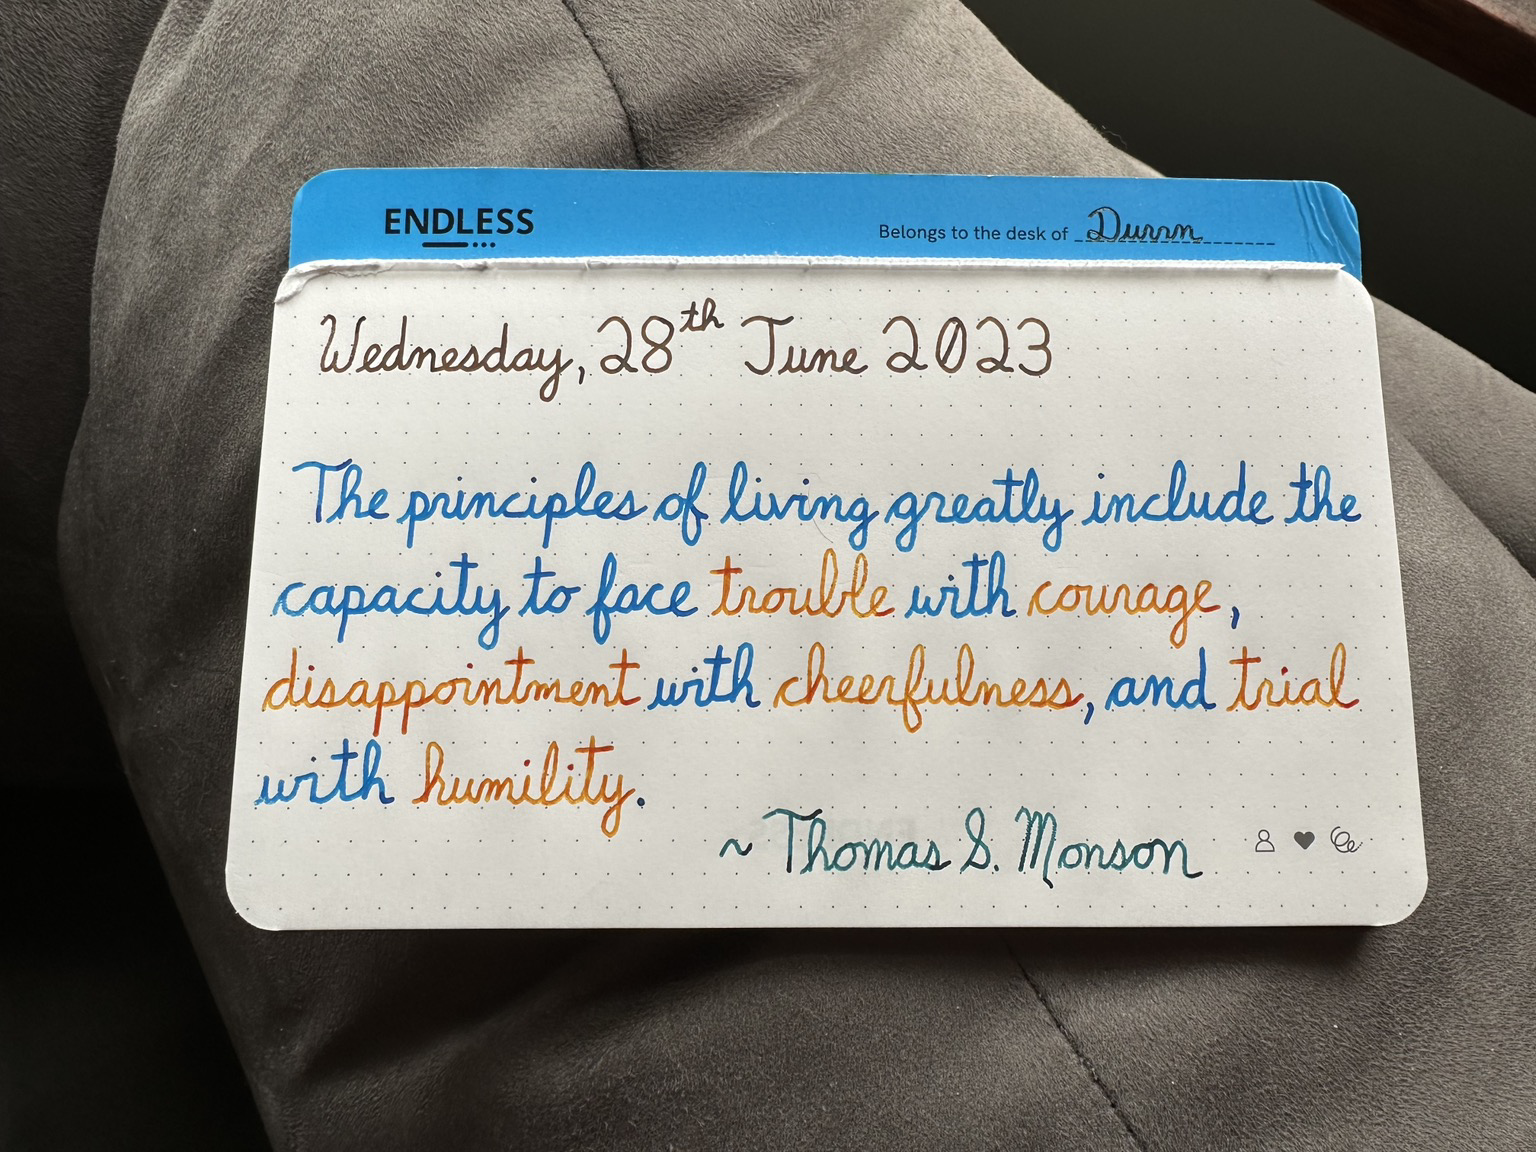 ENDLESS
Belongs to the desk of Durrn
Wednesday, 28th June 2023
The principles of living greatly include the
capacity to face trouble with courage,
disappointment with cheerfulness, and trial
with humility.
~ Thomas S. Monson